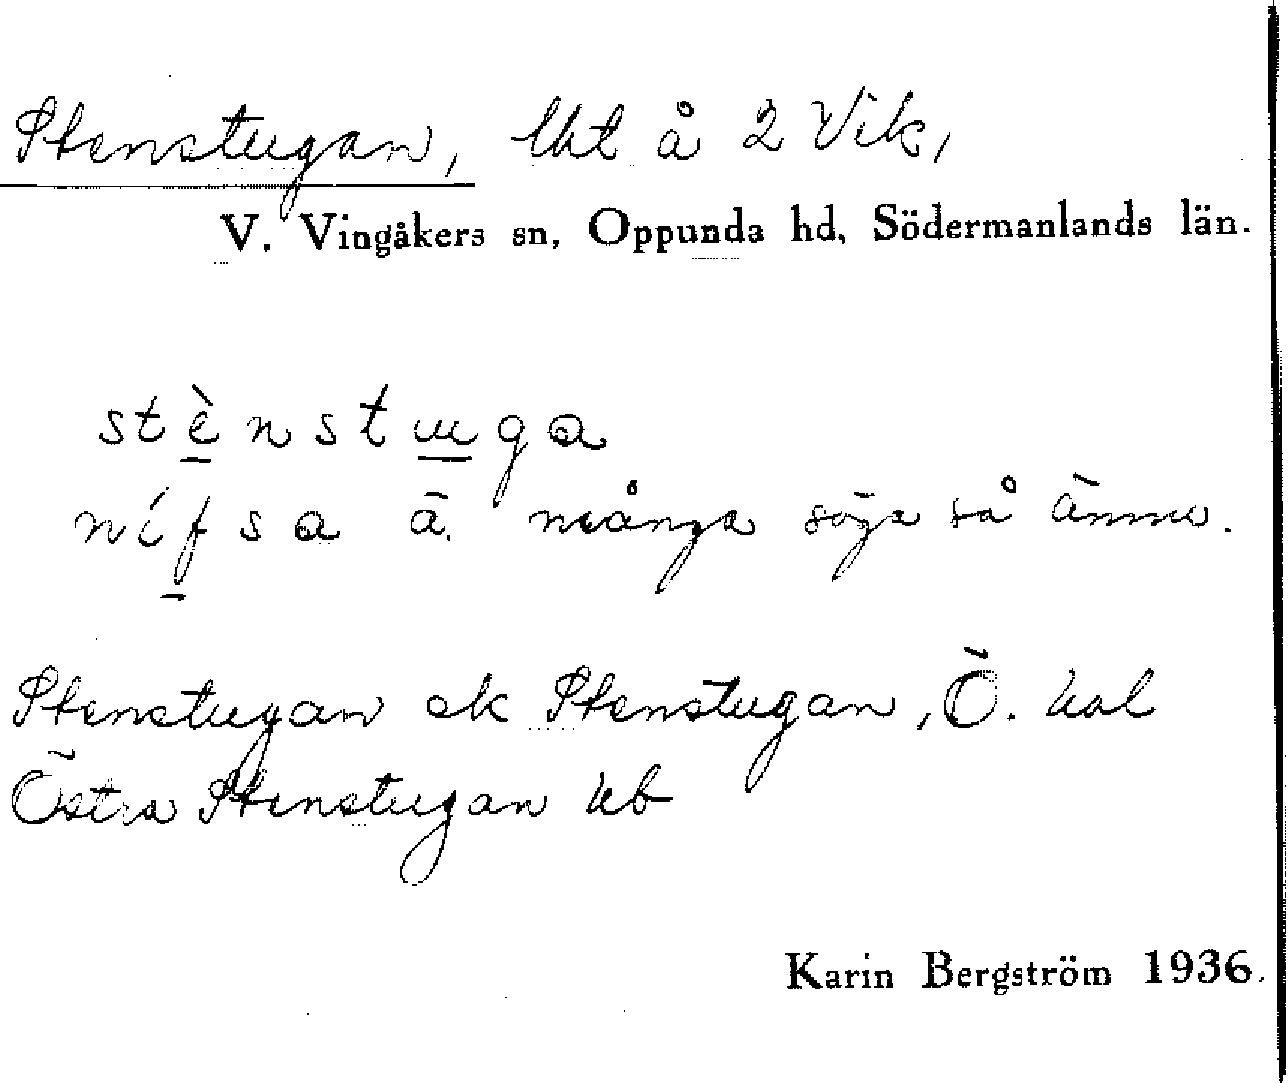 Stenstugan, lht å 2 Vik,
V. Vingåkers sn, Oppunda hd, Södermanlands län.
stènstuga
nífsa ä många säga så ännu.
Stenstugan ek Stenstugan, Ö. hal
Östra Stenstugan hb
Karin Bergström 1936.